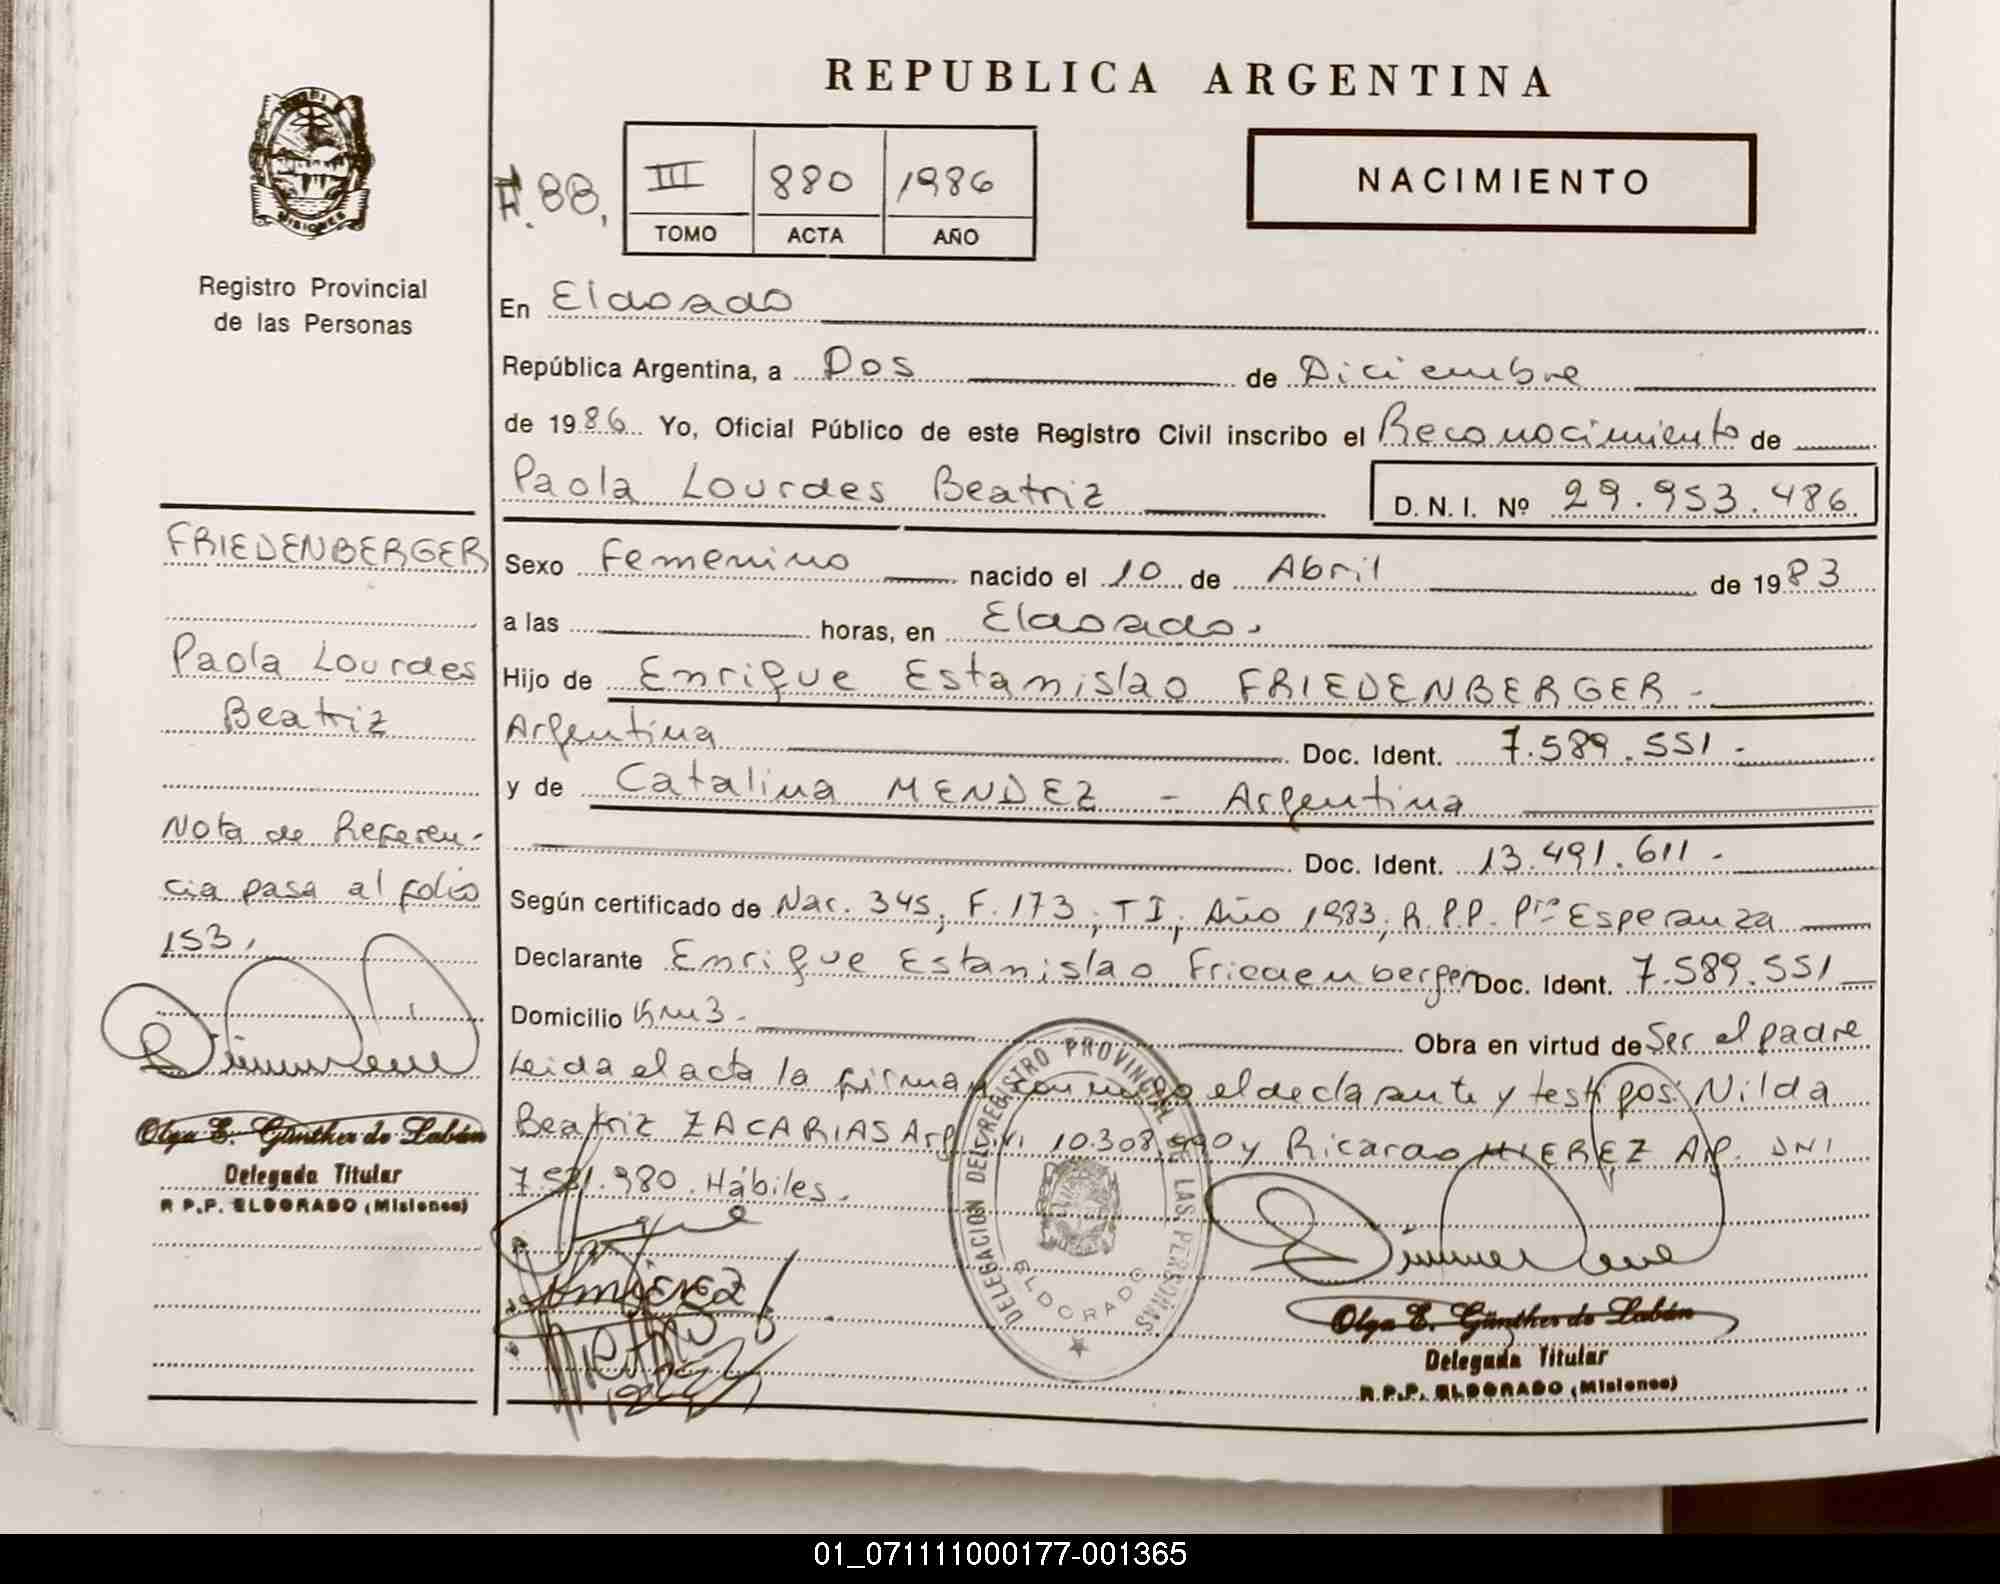 REPUBLICA ARGENTINA
MISIONES
Registro Provincial
de las Personas
F. 88.
III 880 1986
TOMO ACTA AÑO
NACIMIENTO
En Eldorado
República Argentina, a Dos de Diciembre
de 1986 Yo, Oficial Público de este Registro Civil inscribo el Reconocimiento de
Paola Lourdes Beatriz D. N. I. Nº 29.953.486
Sexo Femenino nacido el 10 de Abril de 1983
a las horas, en Eldorado.
Hijo de Enrique Estanislao FRIEDENBERGER -
Argentina Doc. Ident. 7.589.551 -
y de Catalina MENDEZ - Argentina
Doc. Ident. 13.491.611 -
Según certificado de Nac. 345, F. 173, T I, Año 1983, R.P.P. Pto Esperanza
Declarante Enrique Estanislao Friedenberger Doc. Ident. 7.589.551
Domicilio Km 3 - Obra en virtud de Ser el padre
Leida el acta la firman conmigo el declarante y testigos: Nilda
Beatriz ZACARIAS Arg. 10.308.990 y Ricardo Arg. DNI
980. Hábiles.
FRIEDENBERGER
Paola Lourdes
Beatriz
Nota de Referen-
cia pasa al folio
153.
Olga E. Günther de Labán
Delegada Titular
R.P.P. ELDORADO (Misiones)
DELEGACION DEL REGISTRO PROVINCIAL DE LAS PERSONAS
ELDORADO
Olga E. Günther de Labán
Delegada Titular
R.P.P. ELDORADO (Misiones)
01_071111000177-001365